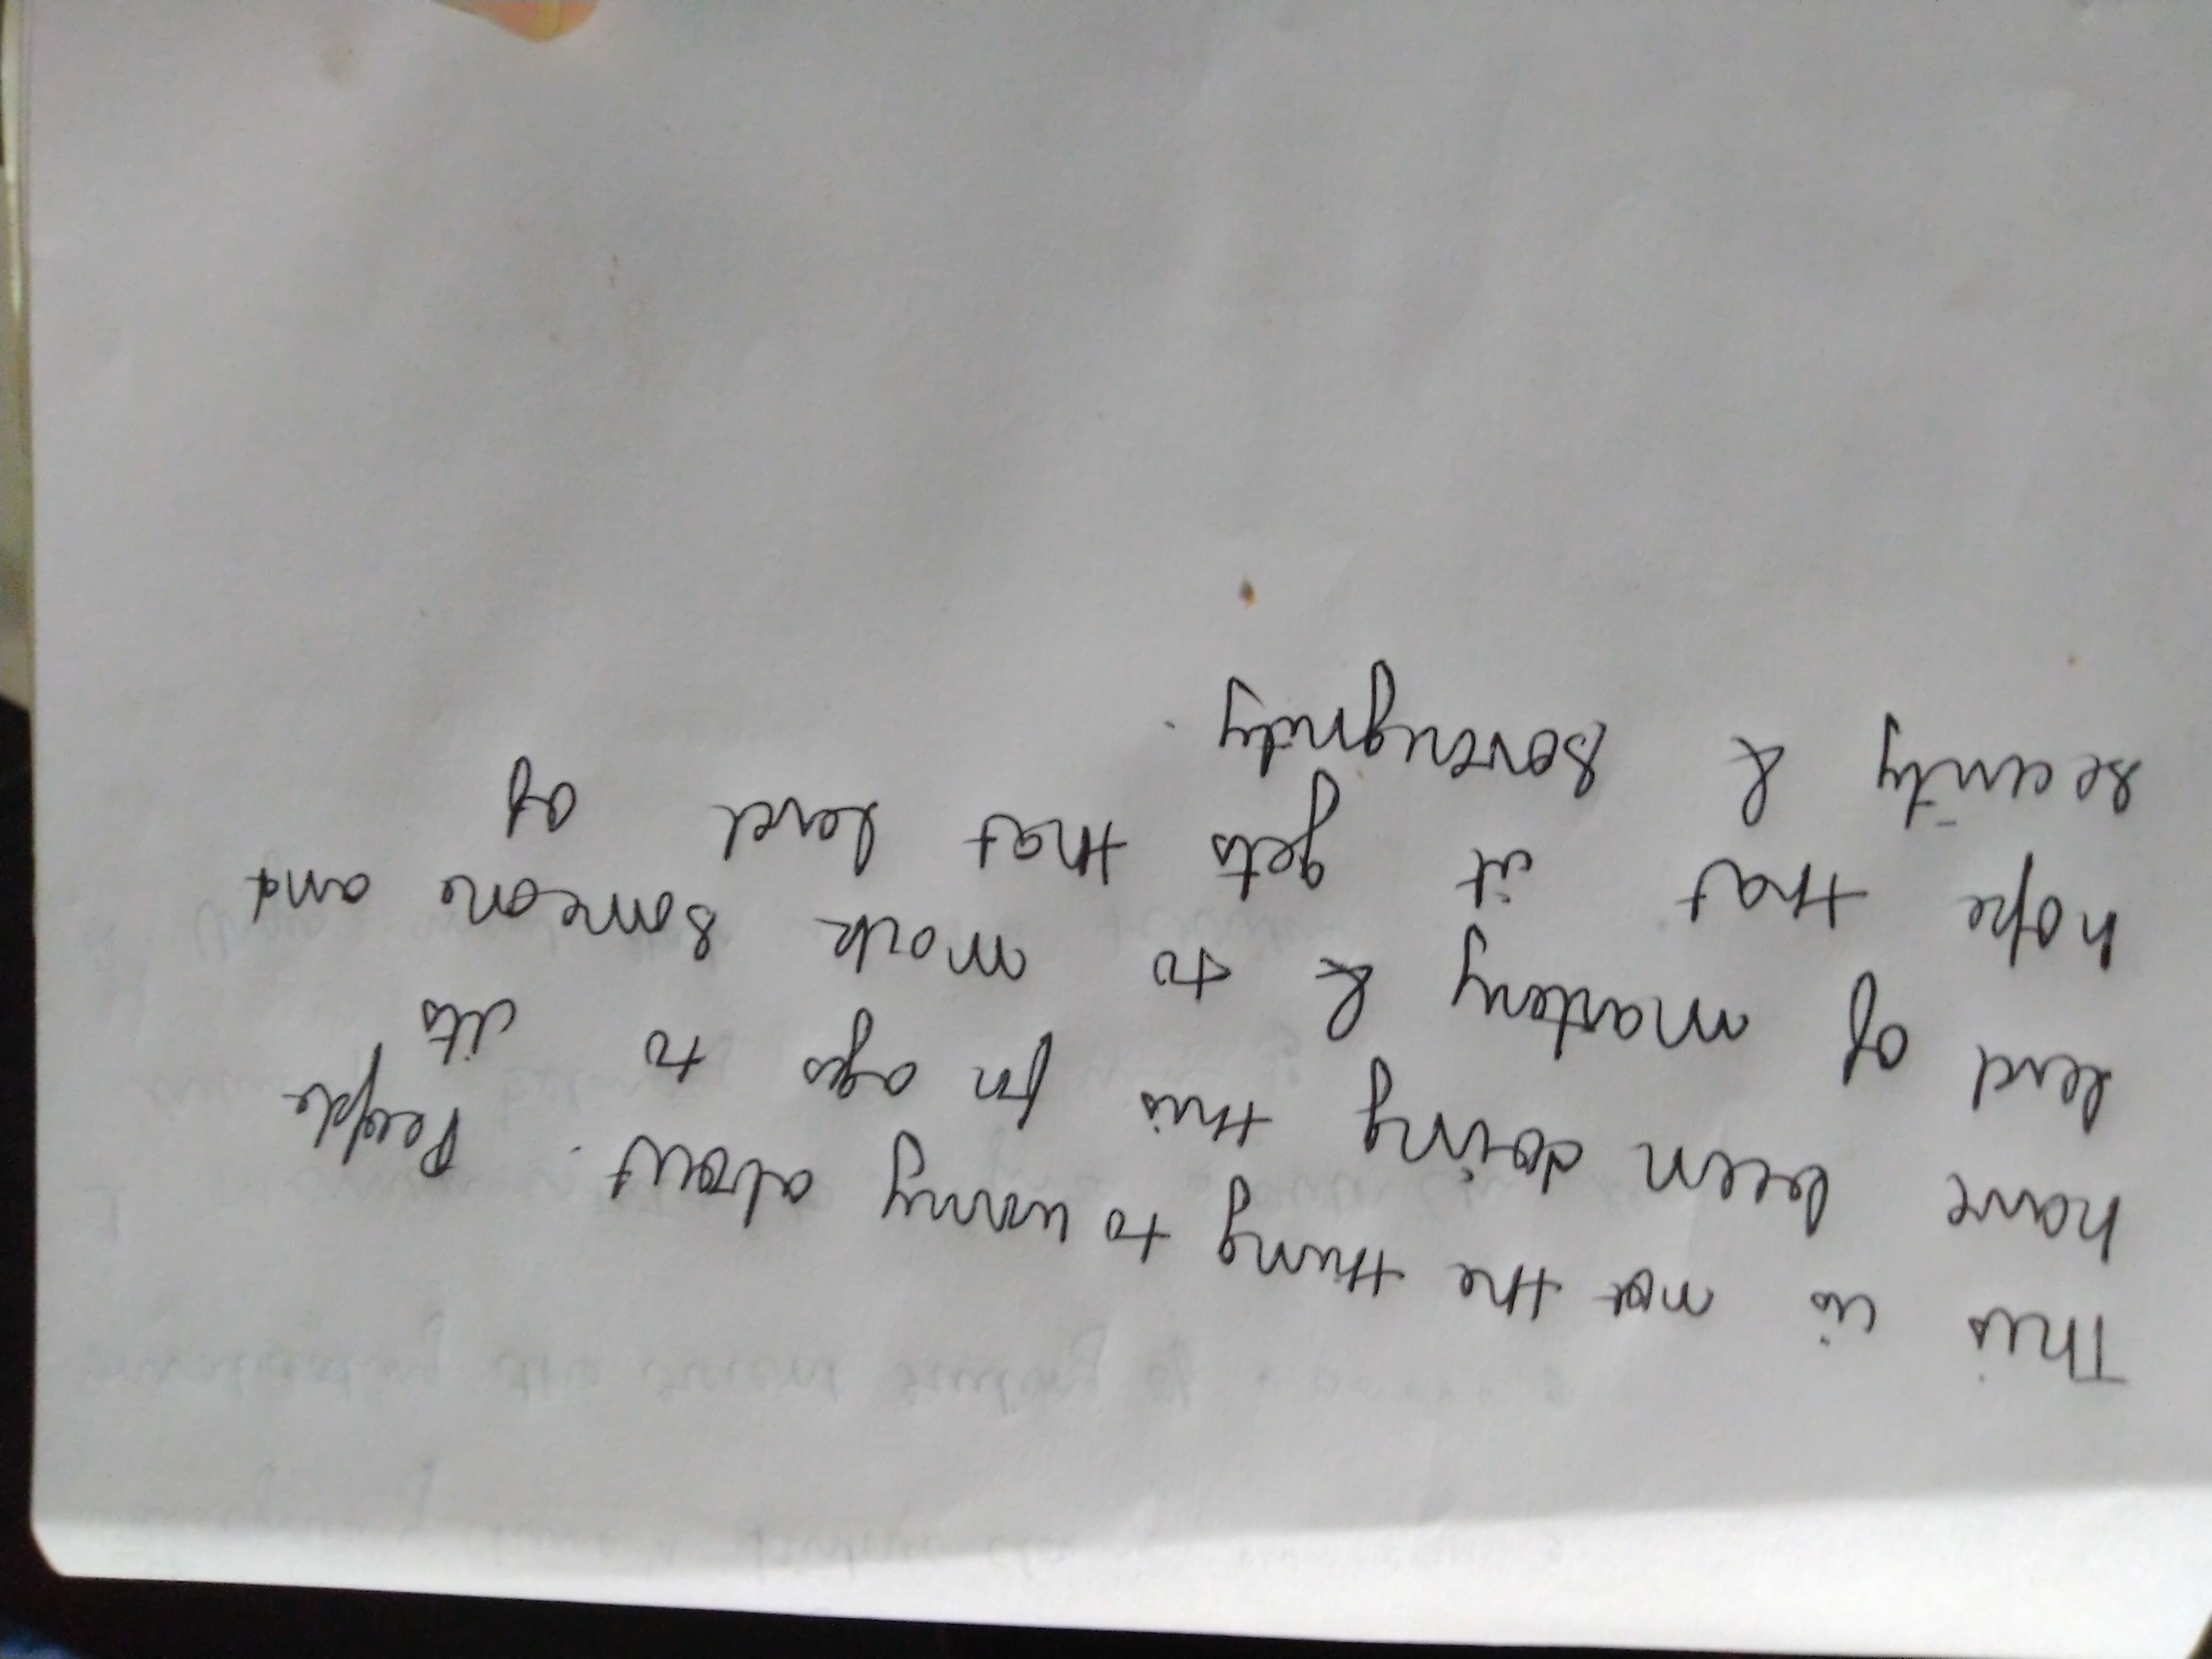 This is not the thing to worry about. People
have been doing this for ages to its
level of mastery & to mock someone and
hope that it gets that level of
security & sovereignity.